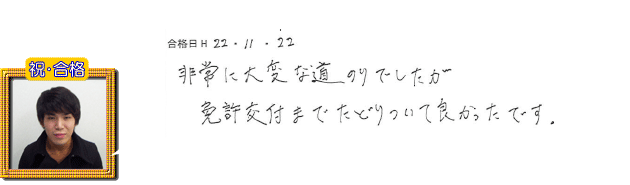 合格日 H 22・11・22
祝・合格
非常に大変な道のりでしたが
免許交付までたどりついて良かったです。